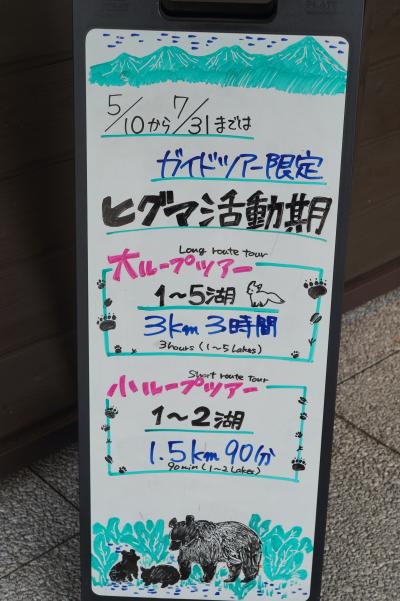 5/10から7/31までは
ガイドツアー限定
ヒグマ活動期
Long route tour
大ループツアー
1～5湖
3km 3時間
3hours (1~5 Lakes)
Short route Tour
小ループツアー
1～2湖
1.5km 90分
90min (1~2 Lakes)